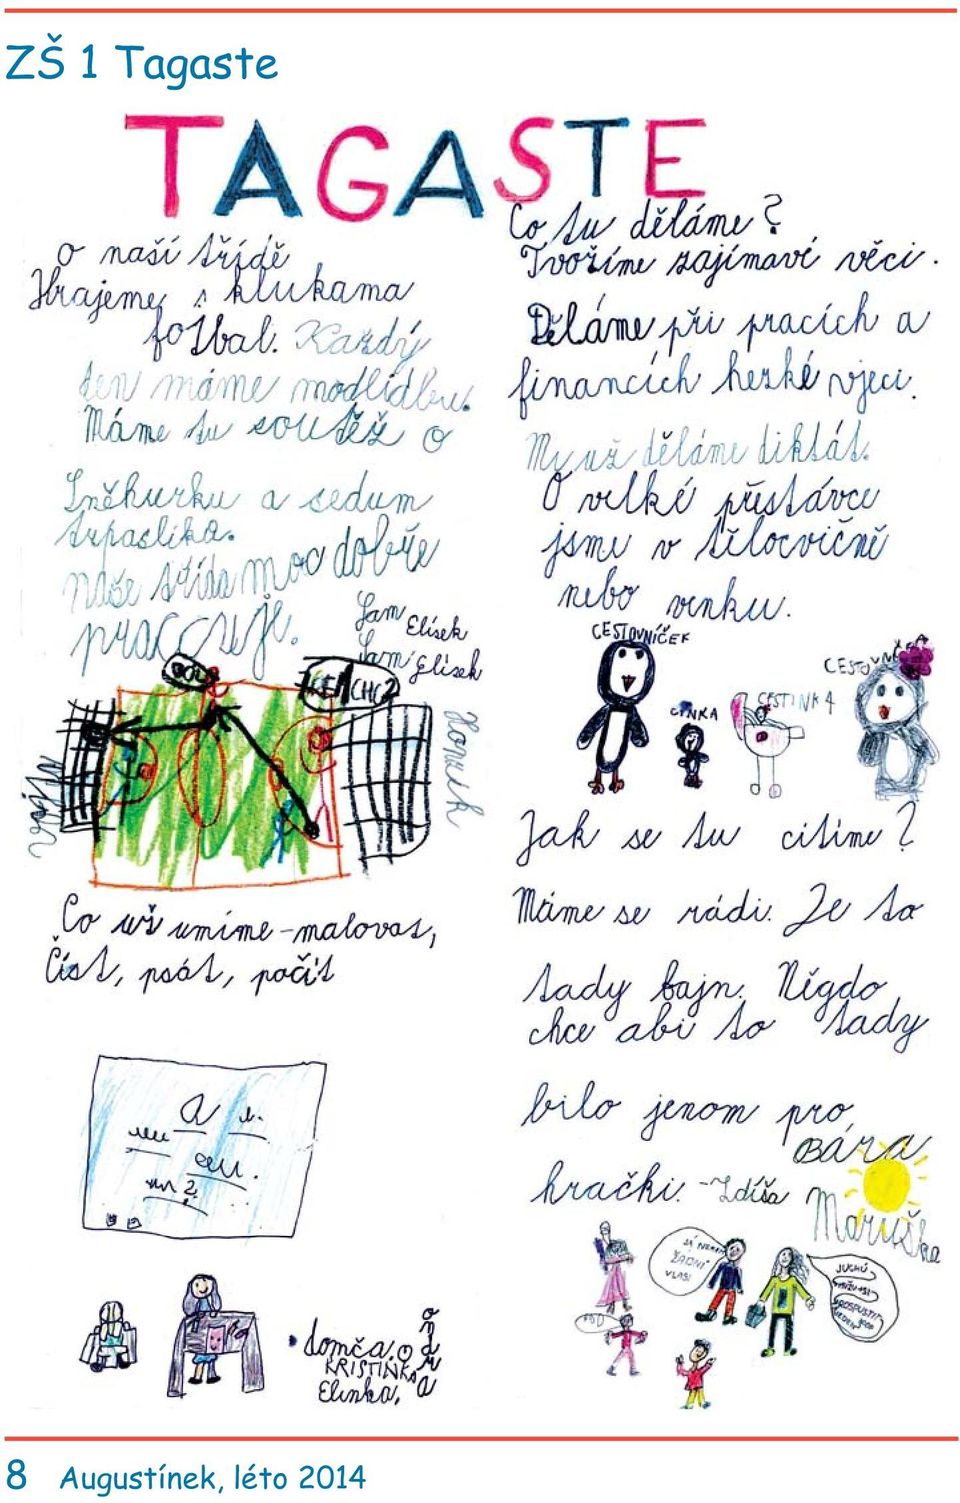 ZŠ 1 Tagaste
TAGASTE
o naší třídě
Hrajeme s klukama
fotbal. Každý
den máme modlidbu.
Máme tu soutěž o
Sněhurku a sedum
trpaslíka.
naše třída moc dobře
pracuje.
Sam Elisek
Sam Elisek
GOL
CHC2
Vojta
Honzik
Co už umíme - malovat,
Číst, psát, počít
domča.
KRISTINKA
Elinka,
ondra
Co tu děláme?
Tvoříme zajímavé věci.
Děláme při pracích a
financích hezké vjeci.
My už děláme diktát.
O velké přestávce
jsme v tělocvičně
nebo venku.
CESTOVNÍČEK
CINKA
CESTINKA
Jak se tu citíme?
Máme se rádi. Je to
tady fajn. Nígdo
chce abi to tady
bilo jenom pro
hrački. - Zdíša
BÁRA
Maruška
JÁ NEMÁM
ŽÁDNÍ
VLASI
JUCHŮ
8 Augustínek, léto 2014